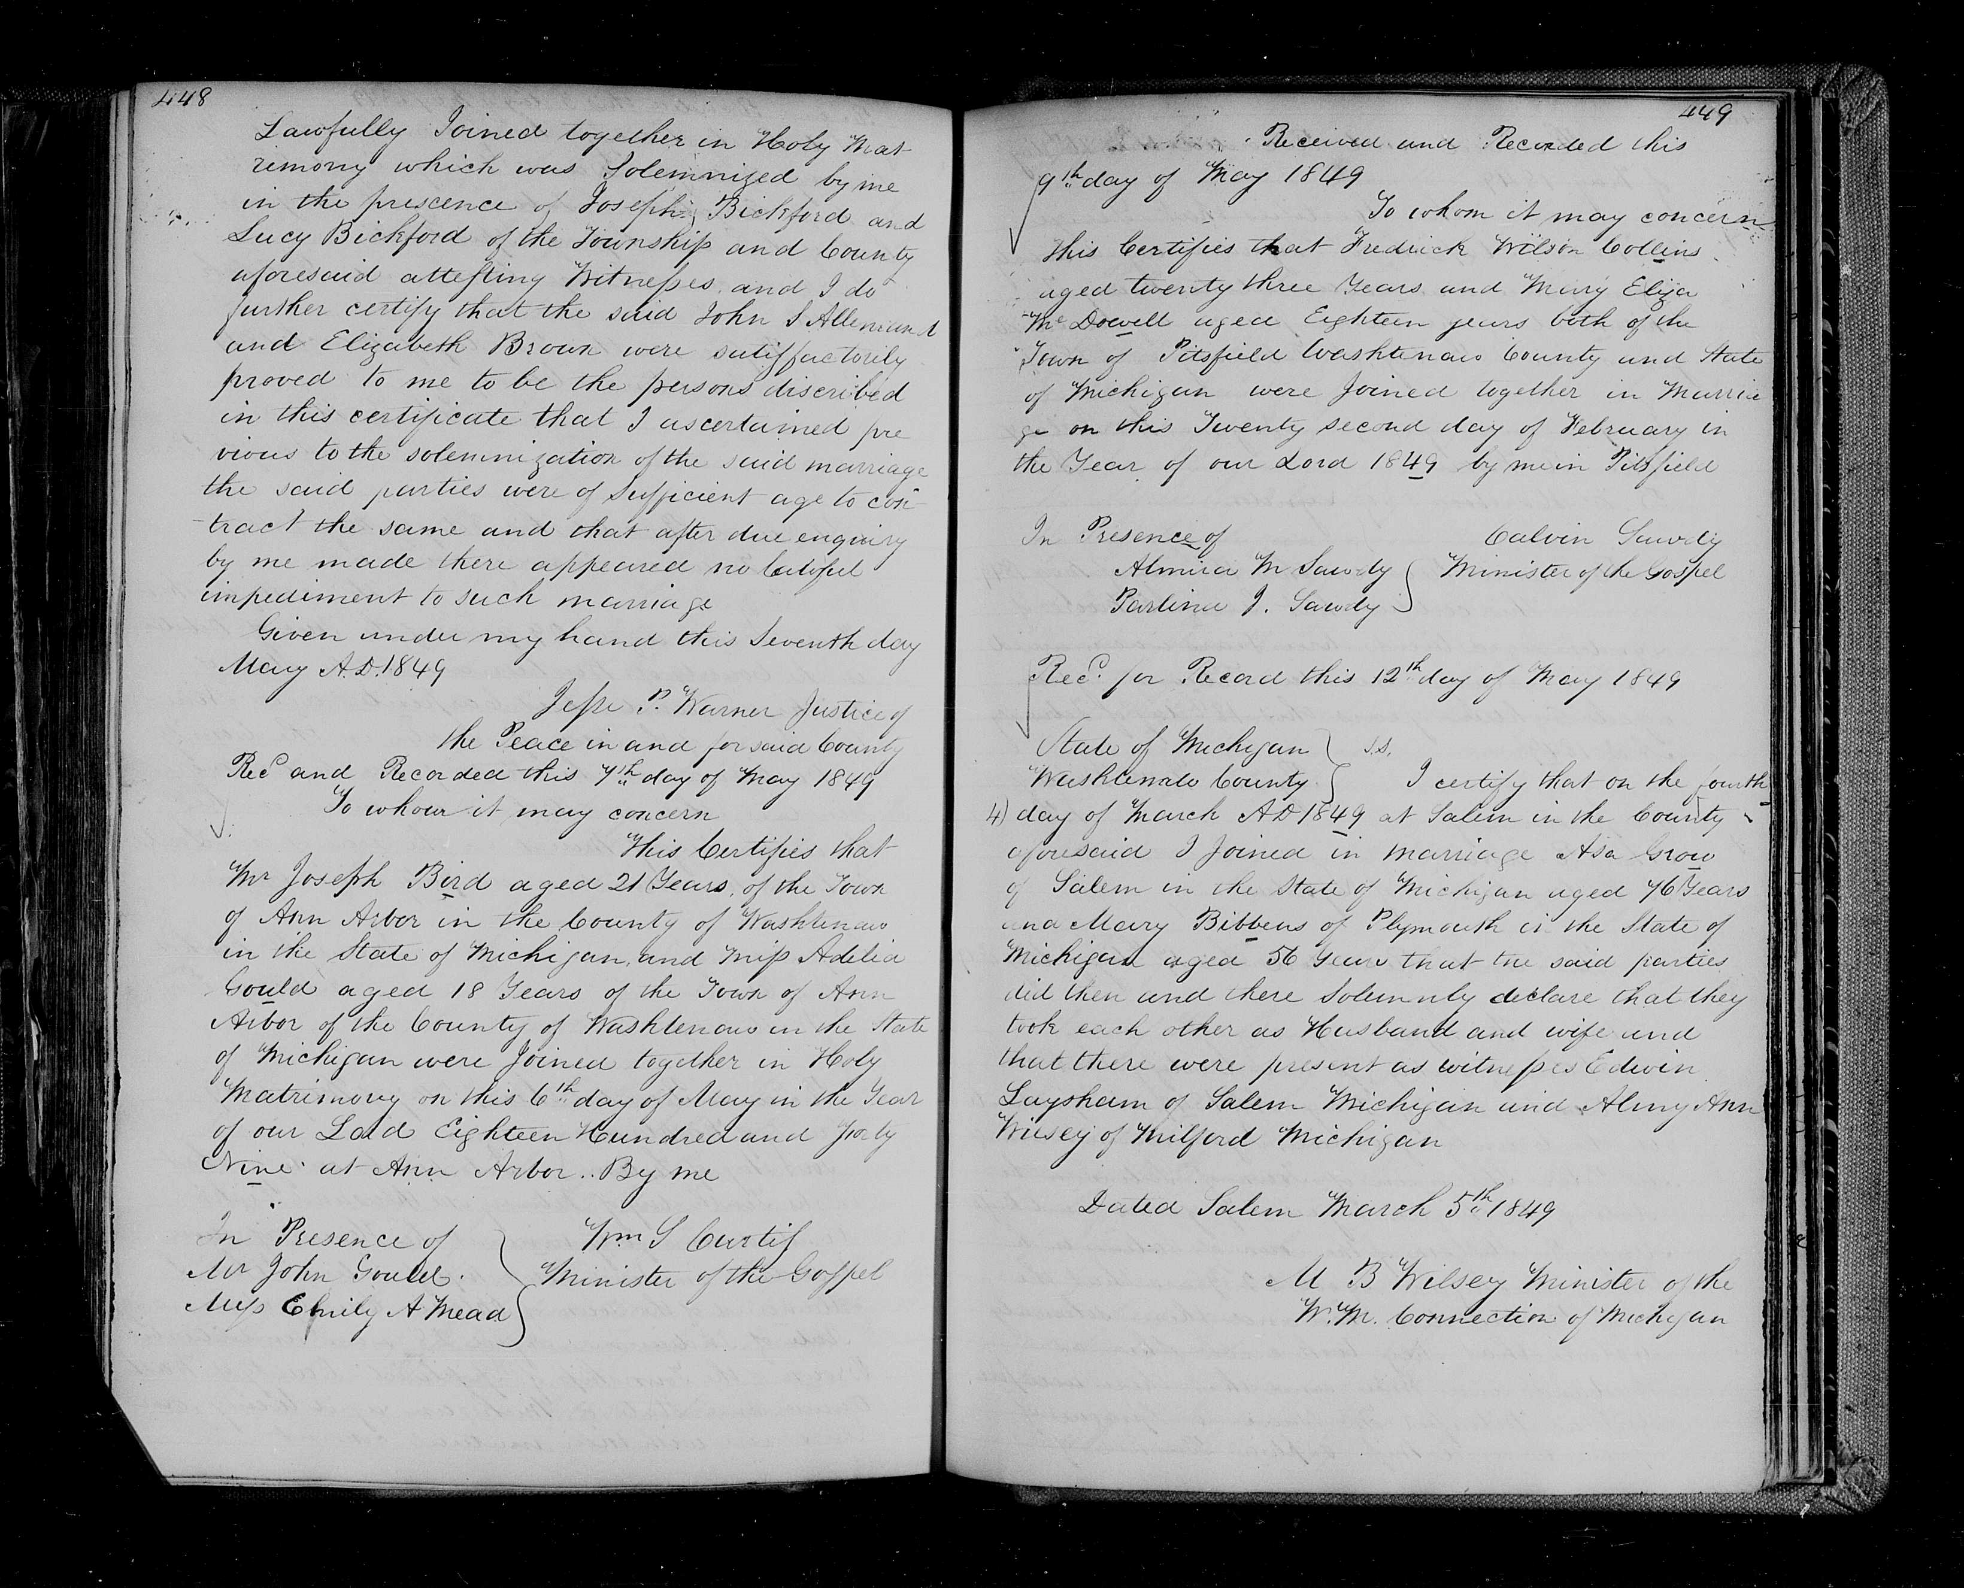 448
Lawfully Joined together in Holy Mat
rimony which was Solemnized by me
in the prescence of Joseph Bickford and
Lucy Bickford of the Township and County
aforesaid attesting Witnesses and I do
further certify that the said John S
and Elizabeth Brown were satisffactorily
proved to me to be the persons discribed
in this certificate that I ascertained pre
vious to the solemnization of the said marriage
the said parties were of Sufficient age to con
tract the same and that after due enquiry
by me made there appeared no lawful
impediment to such marriage
Given under my hand this Seventh day
May A.D. 1849
Jesse P. Warner Justice of
the Peace in and for said County
Recd and Recorded this 7th day of May 1849
To whom it may concern
This Certifies that
Mr Joseph Bird aged 21 Years, of the Town
of Ann Arbor in the County of Washtenaw
in the State of Michigan, and Miss Adelia
Gould aged 18 Years of the Town of Ann
Arbor of the County of Washtenaw in the State
of Michigan were Joined together in Holy
Matrimony on this 6th day of May in the Year
of our Lord Eighteen Hundred and Forty
Nine at Ann Arbor.. By me
In Presence of
Mr John Gould.
Miss Emily A Mead
Wm S Curtis
Minister of the Gospel
449
Received and Recorded this
9th day of May 1849
To whom it may concern
This Certifies that Fredrick Wilson Collins
aged twenty three Years and Mary Eliza
Mc Dowell aged Eighteen years both of the
Town of Pitsfield Washtenaw County and State
of Michigan were Joined together in Marria
ge on this Twenty second day of February in
the Year of our Lord 1849 by me in Pitsfield
In Presence of
Almira M Sawdy
J. Sawdy
Calvin Sawdy
Minister of the Gospel
Recd. for Record this 12th day of May 1849
State of Michigan } S.S.
Washtenaw County } I certify that on the fourth
4) day of March AD 1849 at Salem in the County
aforesaid I Joined in marriage Asa Grow
of Salem in the State of Michigan aged 76 Years
and Mary Bibbens of Plymouth in the State of
Michigan aged 56 Years that the said parties
did then and there Solemnly declare that they
took each other as Husband and wife and
that there were present as witnesses Edwin
Laysham of Salem Michigan and Almy Ann
Wilsey of Milford Michigan
Dated Salem March 5th 1849
M B Wilsey Minister of the
W. M. Connection of Michigan